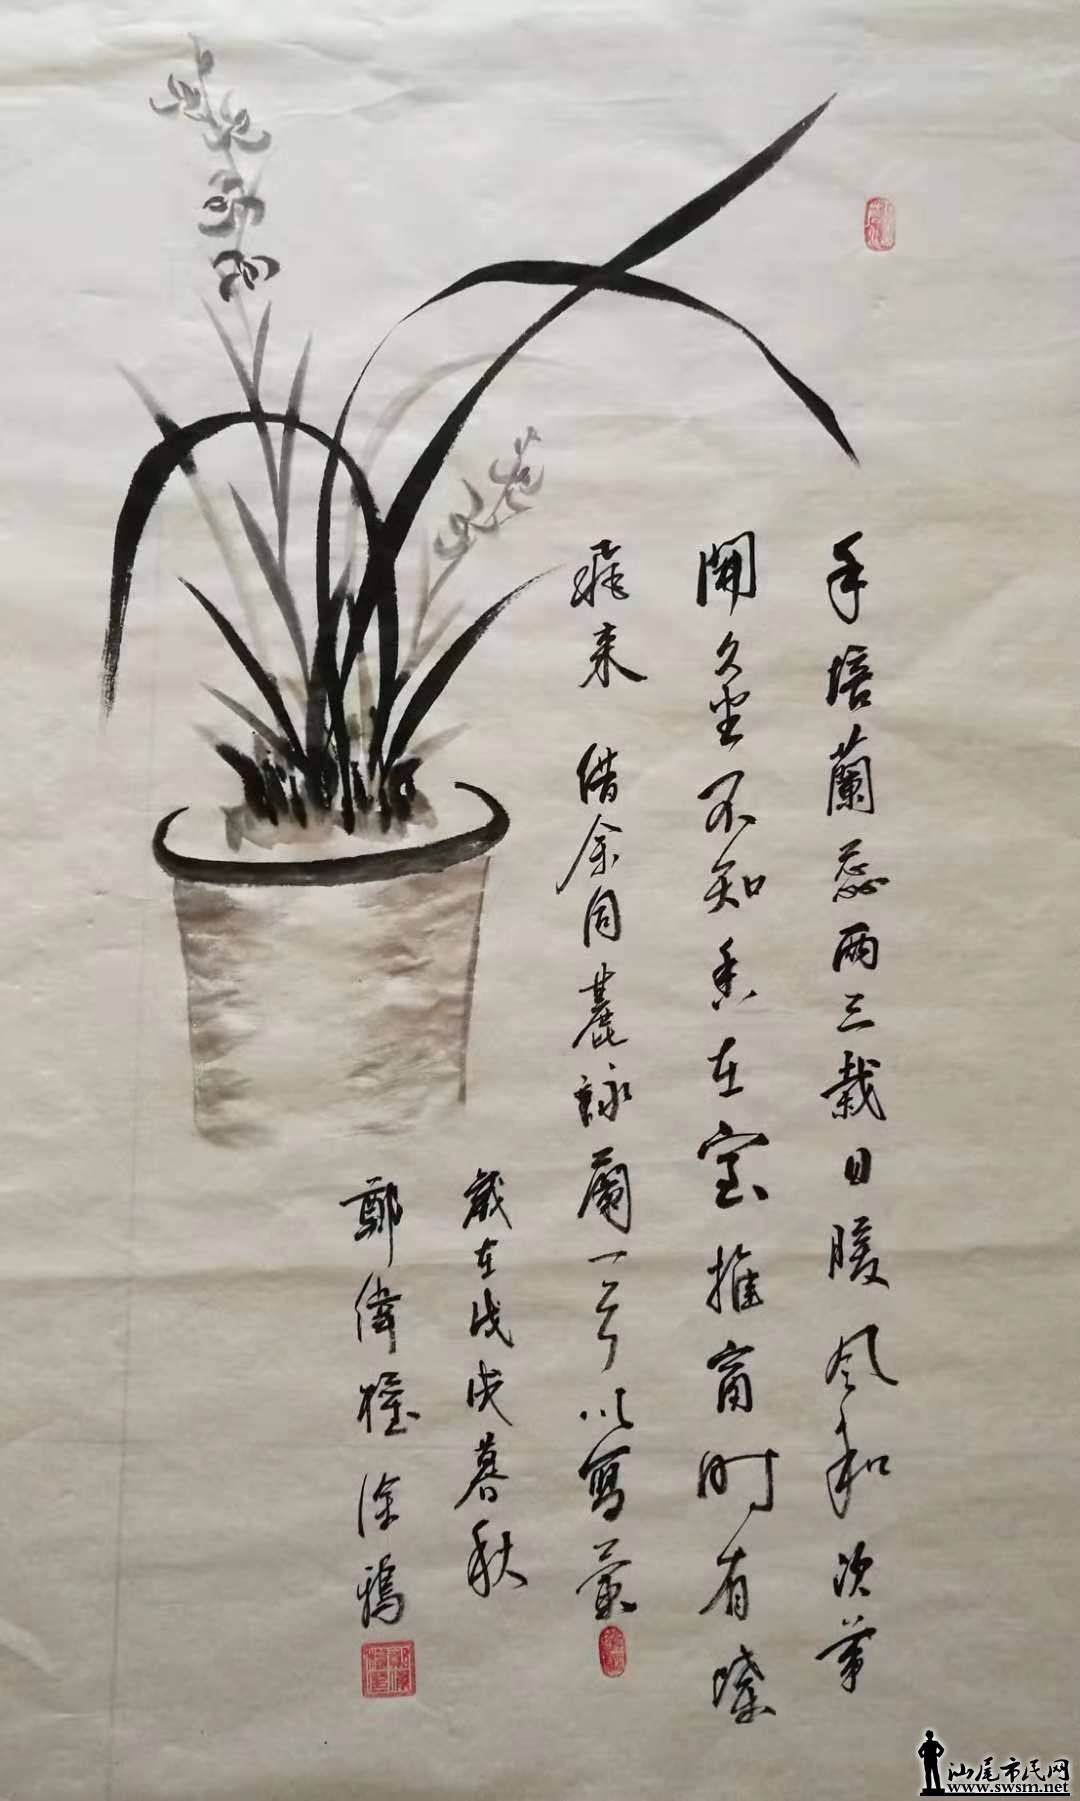 手培蘭蕊兩三栽日暖风和次第
開久坐不知香在室推窗时有蝶
飛来 借余同麓詠蘭一首以寫蘭
歲在戊戌暮秋
鄭偉 涂鴉
汕尾市民网
www.swsm.net